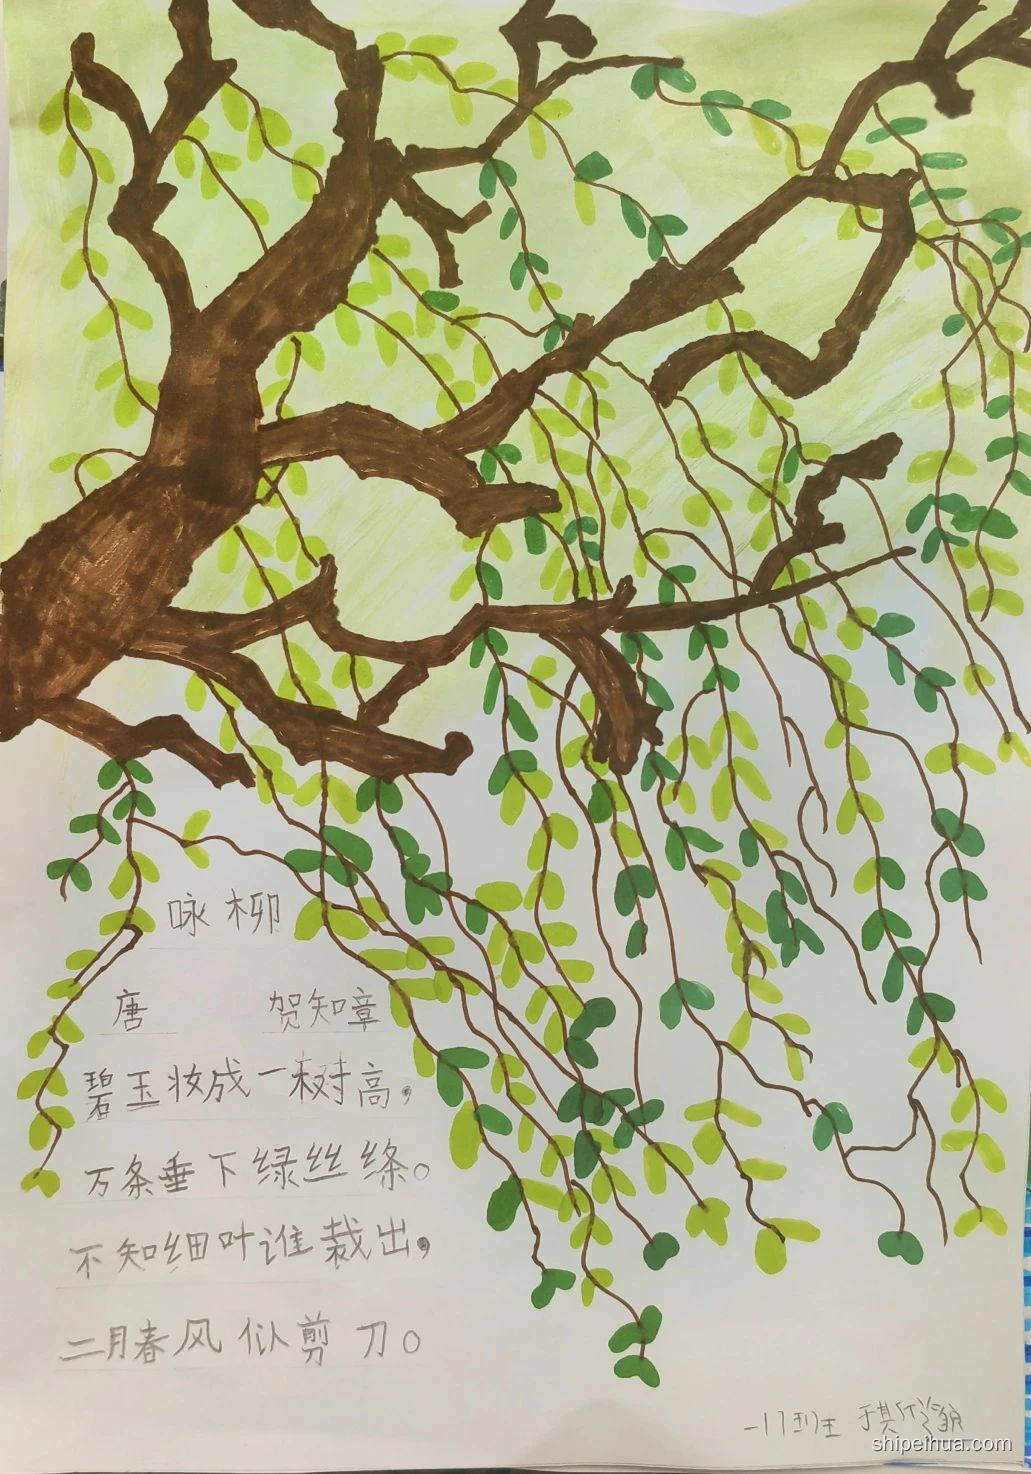 咏柳
唐 贺知章
碧玉妆成一树高，
万条垂下绿丝绦。
不知细叶谁裁出，
二月春风似剪刀。
shipeihua.com